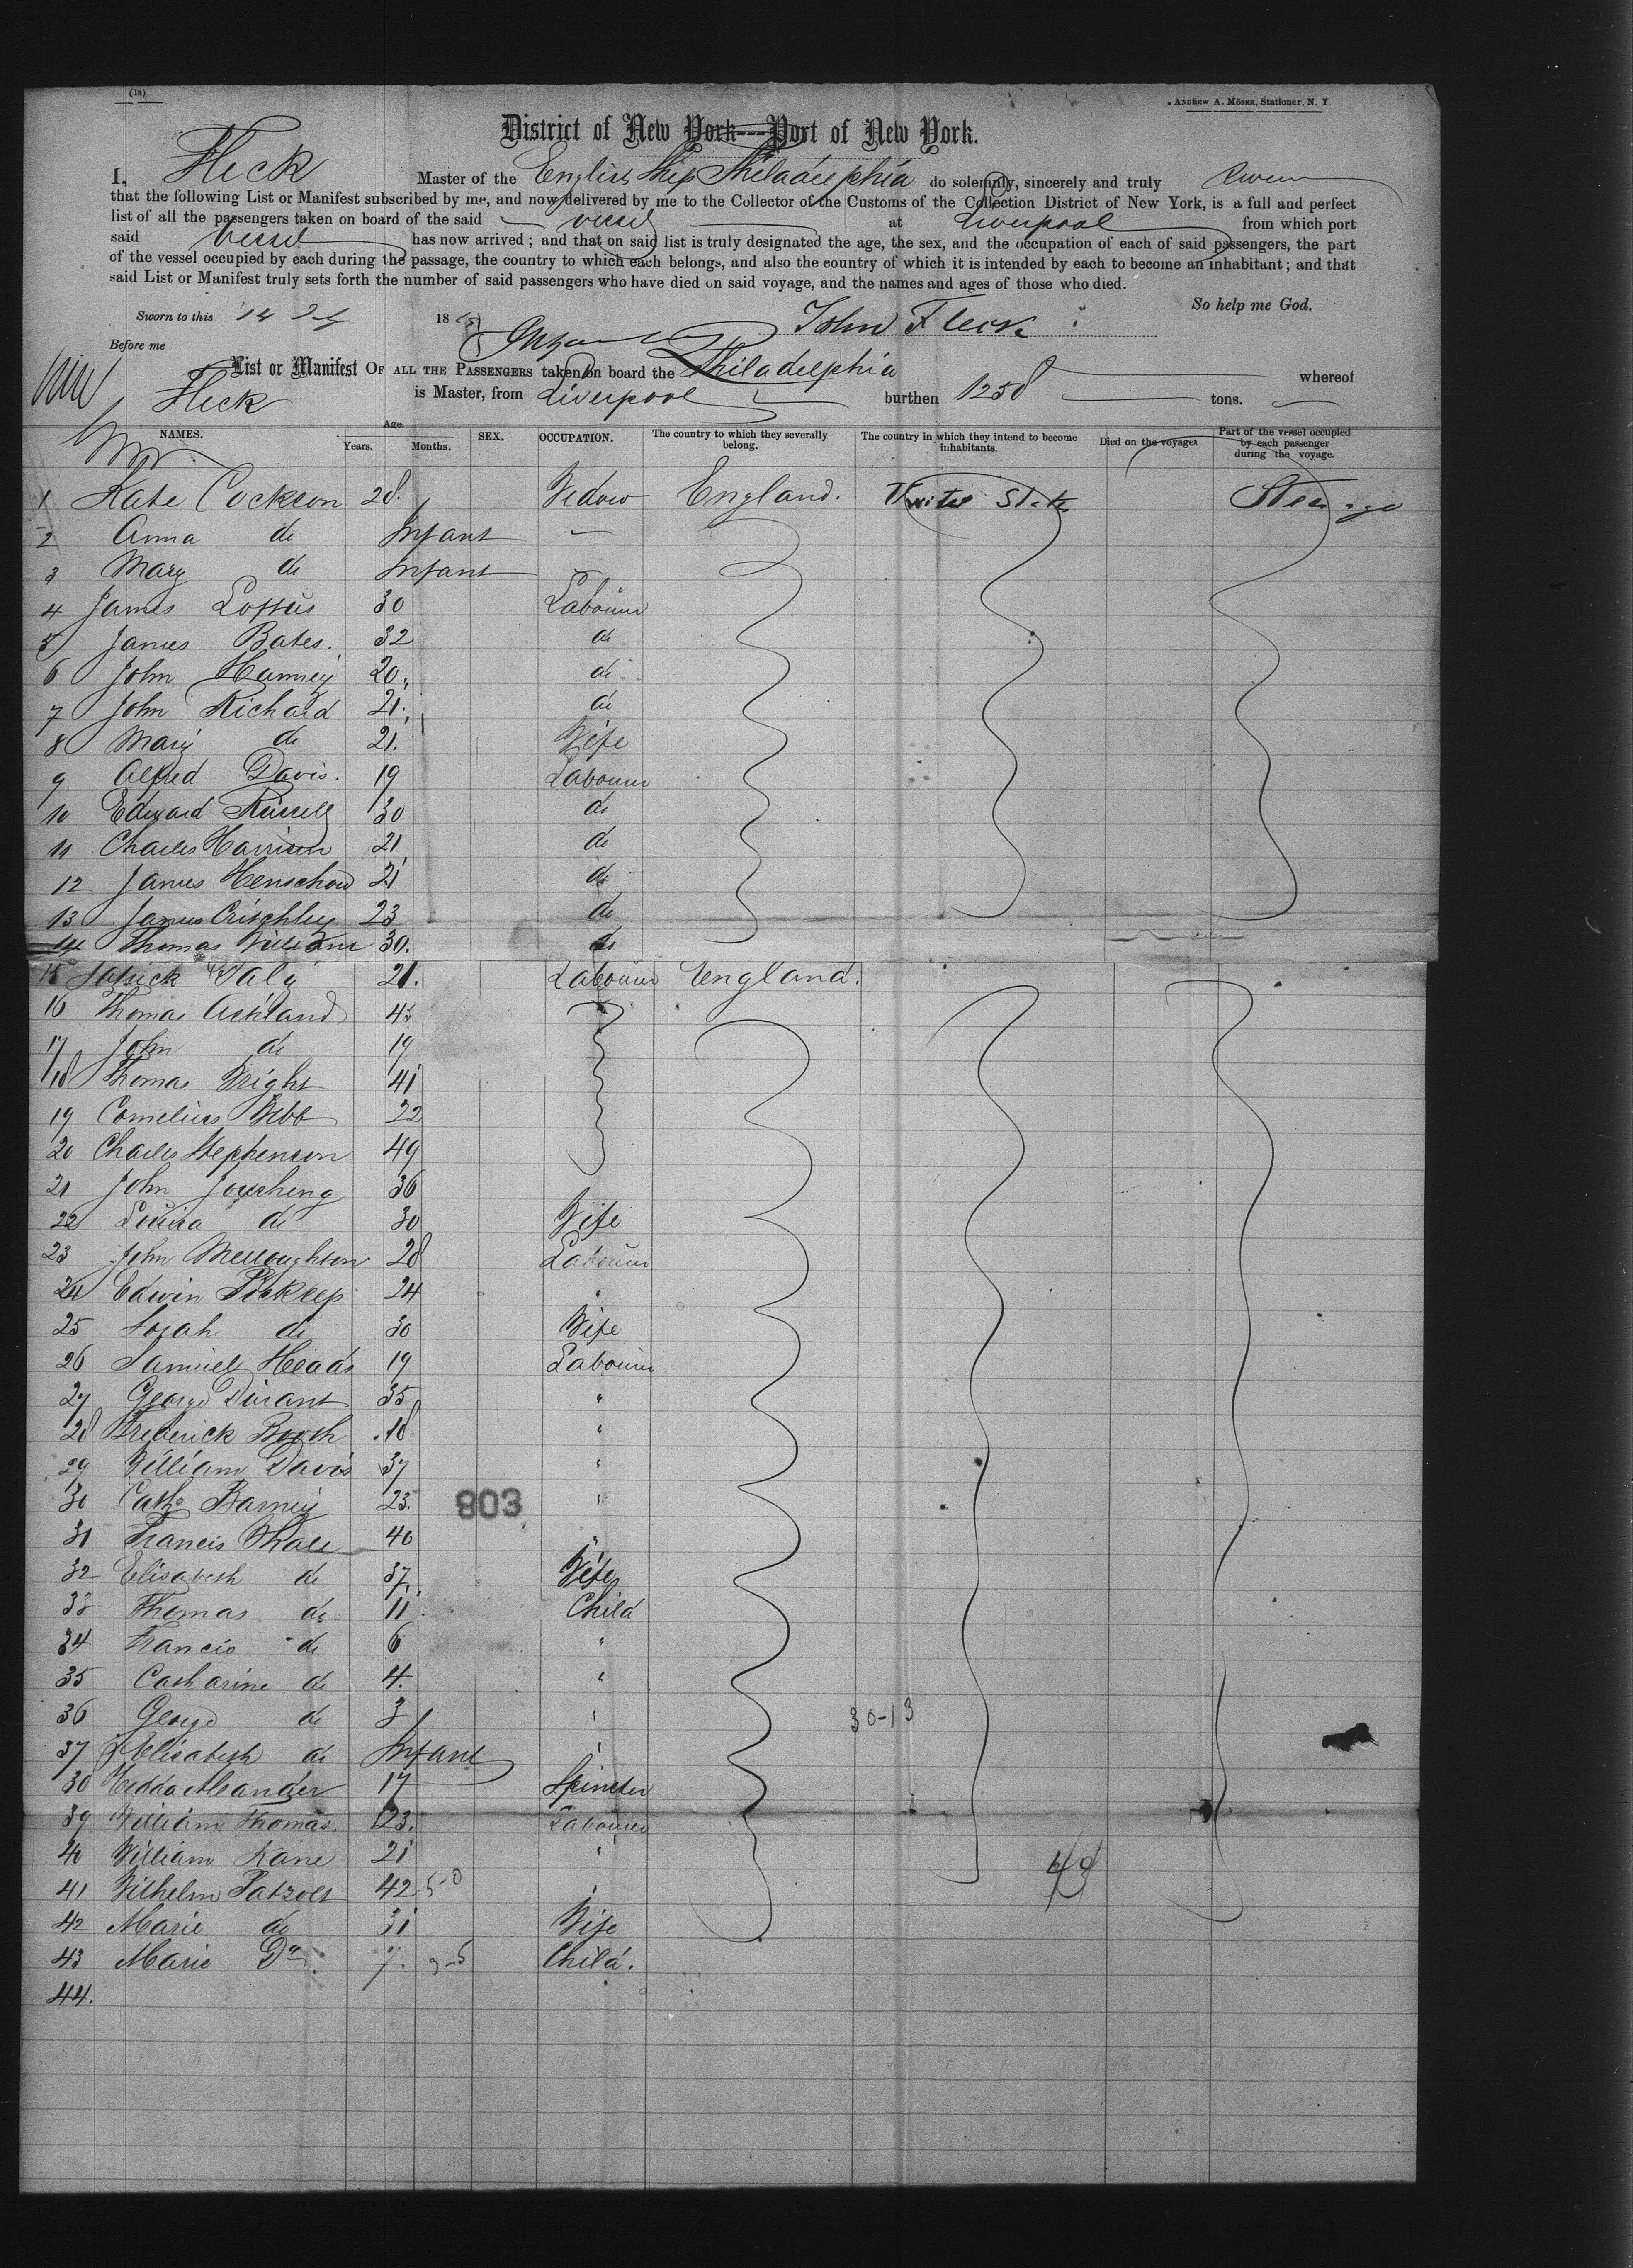 (18)
Andrew A. Möser, Stationer, N. Y.
District of New York---Port of New York.
I, Fleck Master of the English Ship Philadelphia do solemnly, sincerely and truly swear
that the following List or Manifest subscribed by me, and now delivered by me to the Collector of the Customs of the Collection District of New York, is a full and perfect
list of all the passengers taken on board of the said vessel at Liverpool from which port
said vessel has now arrived; and that on said list is truly designated the age, the sex, and the occupation of each of said passengers, the part
of the vessel occupied by each during the passage, the country to which each belongs, and also the country of which it is intended by each to become an inhabitant; and that
said List or Manifest truly sets forth the number of said passengers who have died on said voyage, and the names and ages of those who died.
So help me God.
Sworn to this 14 186
John Fleck
Before me
List or Manifest OF ALL THE PASSENGERS taken on board the Philadelphia whereof
Fleck is Master, from Liverpool burthen 1258 tons.
NAMES. Age. Years. Months. SEX. OCCUPATION. The country to which they severally belong. The country in which they intend to become inhabitants. Died on the voyage. Part of the vessel occupied by each passenger during the voyage.
1 Kate Cockson 28. Widow England. United State Steerage
2 Anna do Infant —
3 Mary do Infant
4 James Loftus 30 Labourer
5 James Bates. 32 do
6 John Hanney 20. do
7 John Richard 21. do
8 Mary do 21. Wife
9 Alfred Davis. 19 Labourer
10 Edward Russell 30 do
11 Charles Harrison 21 do
12 James Henschow 21 do
13 James Critchley 23 do
14 Thomas Williams 30. do
15 Patrick Daly 21. Labourer England.
16 Thomas Ackland
17 John do 19
18 Thomas Wright 41
19 Cornelius Webb 22
20 Charles Stephenson 49
21 John 36
22 Louisa do 30 Wife
23 John 28 Labourer
24 Edwin 24 "
25 Sarah do 30 Wife
26 Samuel Heads 19 Labourer
27 George Durant 35 "
28 Frederick Booth 18 "
29 William Davis 37 "
30 Cath. Barney 23. "
31 Francis 40 "
32 Elisabeth do 37. Wife
33 Thomas do 11. Child
34 Francis do 6 "
35 Catharine do 4. "
36 George do 3 "
37 Elisabeth do Infant "
38 Hedda Aleander 17 Spinster
39 William Thomas. 23. Labourer
40 William Kane 21 "
41 Wilhelm Patzolt 42 "
42 Marie do 31 Wife
43 Marie Do. 7. Child.
44.
803
30-13